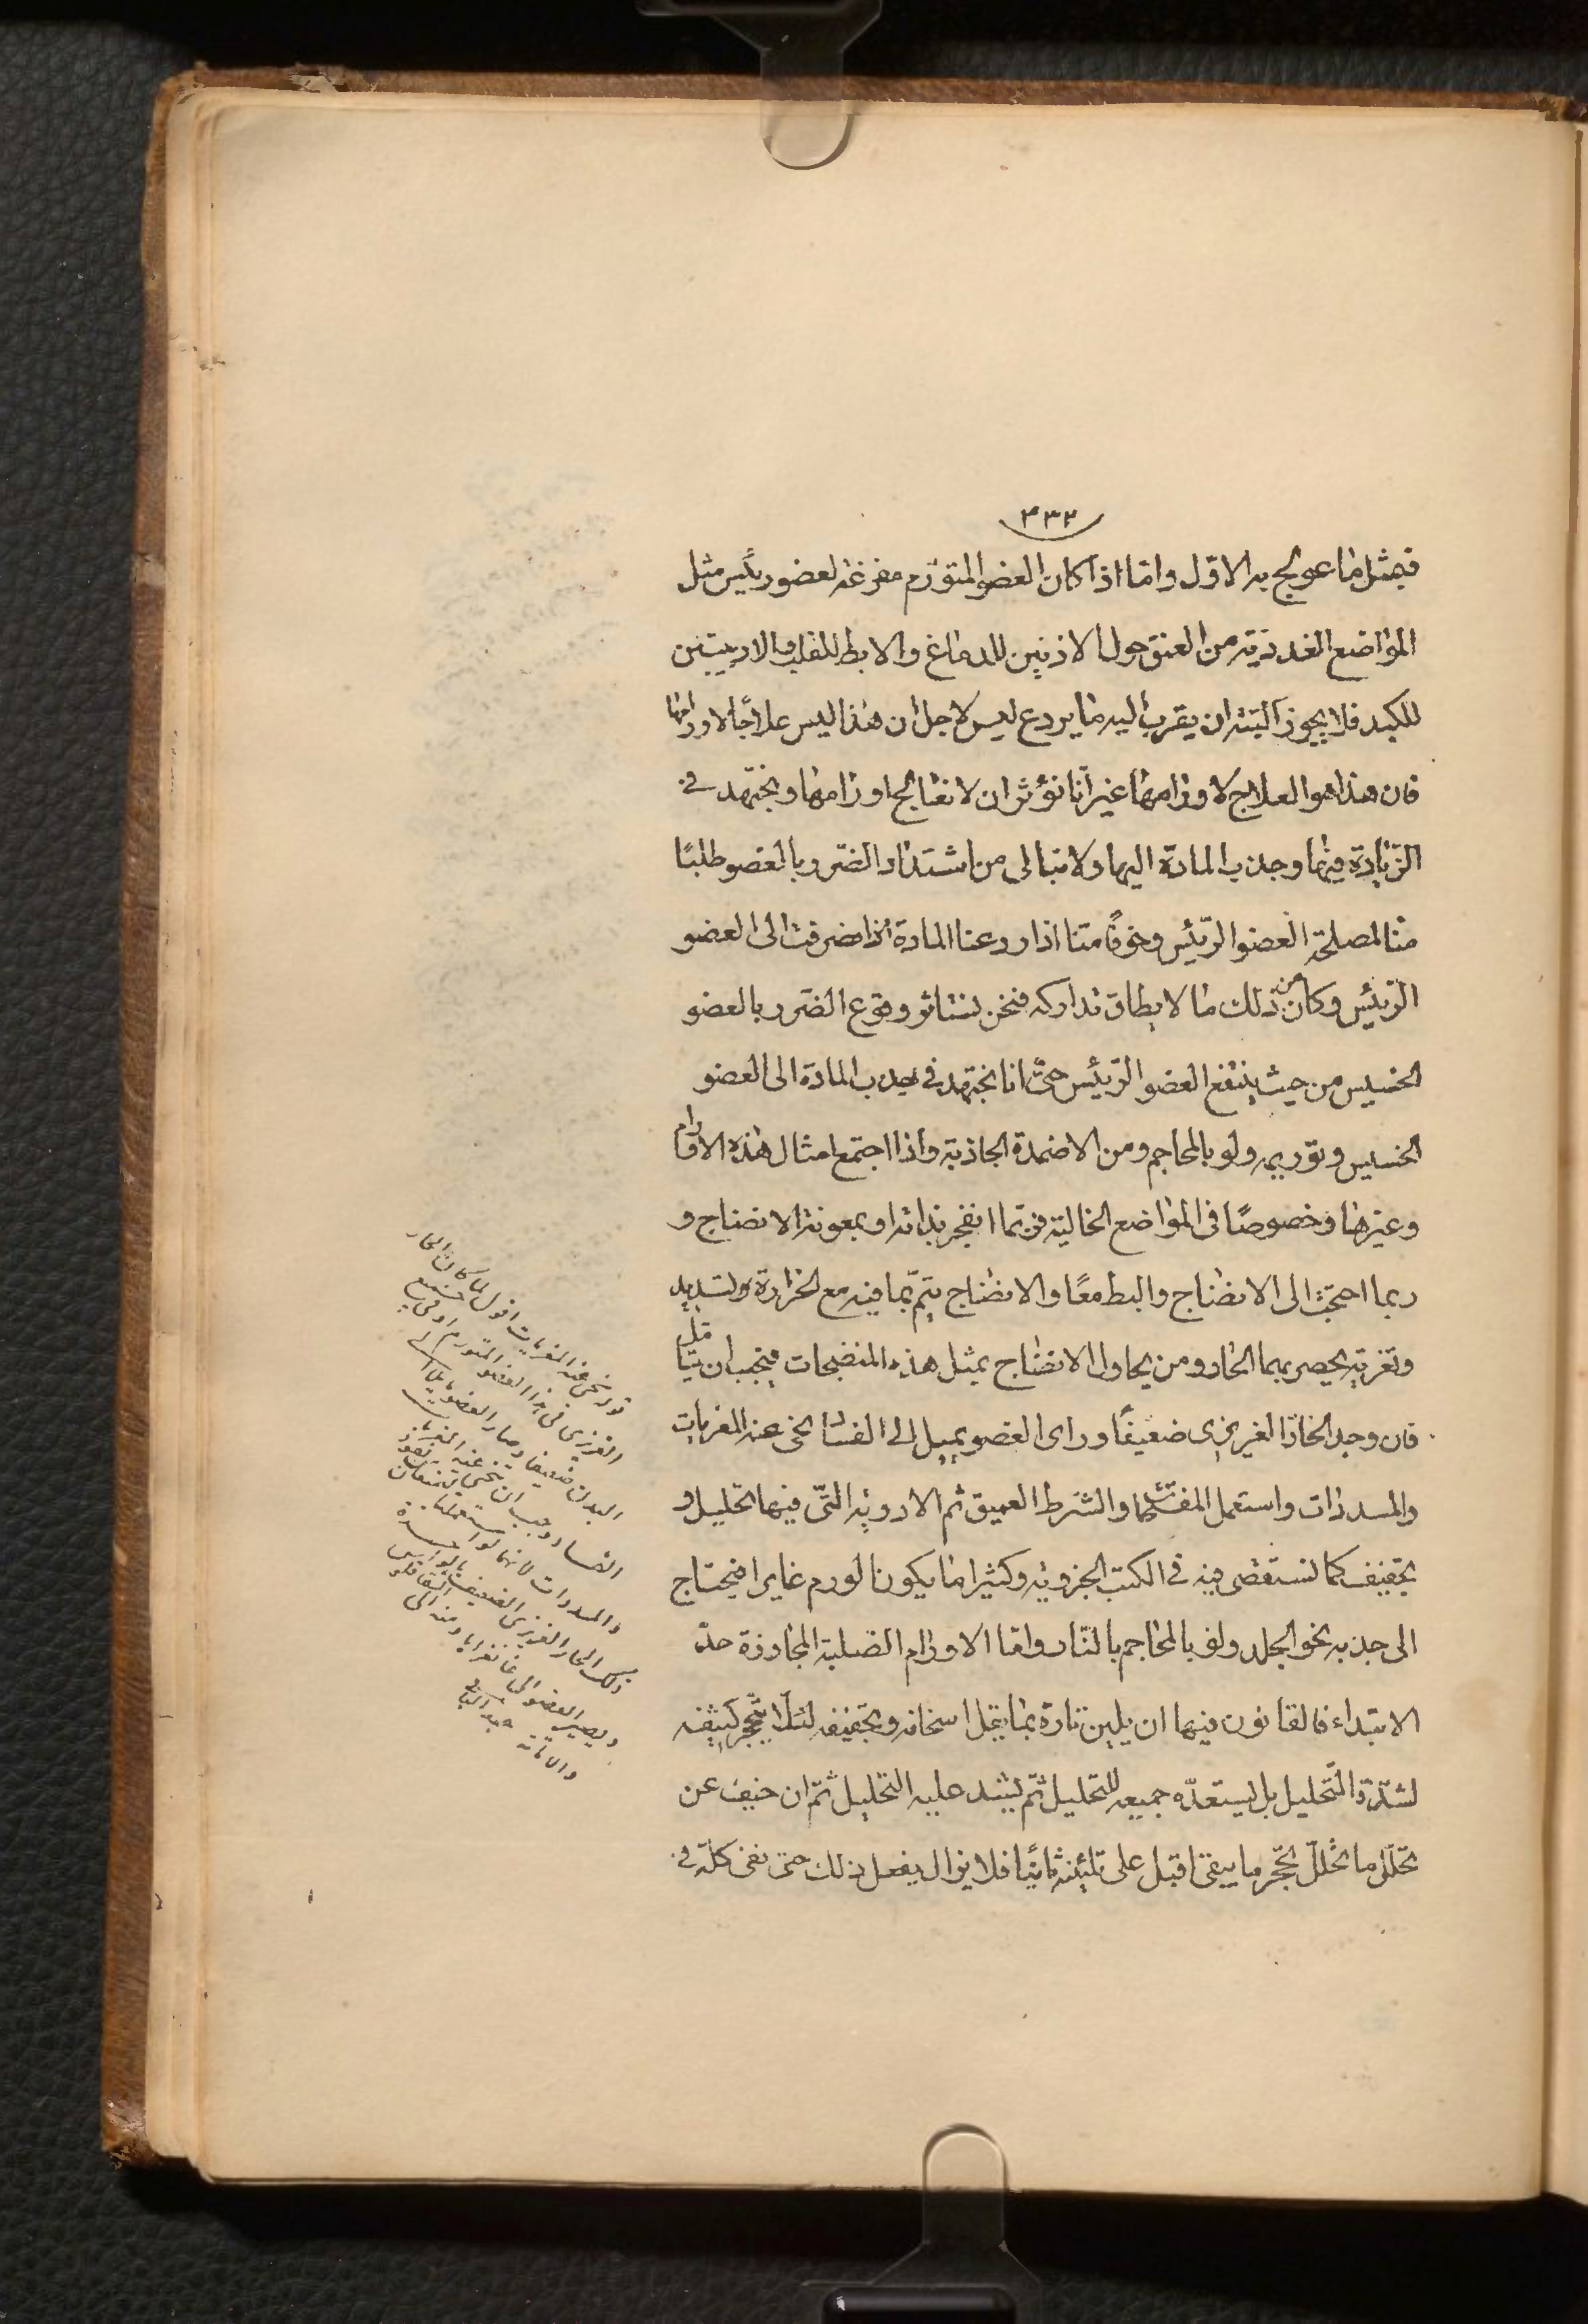 ٣٣٢
فبمثل ما عولج به الاوّل وامّا اذا كان العضو المتورّم مفرغة لعضو رئيس مثل
المواضع الغددية من العنق حول الاذنين للدماغ والابط للقلب والاربيتين
للكبد فلا يجوز البتة ان يقرب اليه ما يردع ليس لاجل ان هذا ليس علاجًا لاورامها
فان هذا هو العلاج لاورامها غير أنّا نؤثر ان لا نعالج اورامها ونجتهد في
الزّيادة فيها وجذب المادّة اليها ولا نبالى من اشتداد الضّرر بالعضو طلبًا
منا لمصلحة العضو الرّئيس وخوفًا منا اذا ردعنا المادة انصرفت الى العضو
الرّئيس وكان من ذلك ما لا يطاق تداركه فنحن نستاثر وقوع الضّرر بالعضو
الخسيس من حيث ينتفع العضو الرّئيس حتّى انا نجتهد فى جذب المادّة الى العضو
الخسيس وتوريمه ولو بالمحاجم ومن الاضمدة الجاذبة واذا اجتمع امثال هذه الاورام
وغيرها وخصوصًا فى المواضع الخالية فربّما انفجر بذاته او بمعونة الانضاج و
ربما احتجت الى الانضاج والبط معًا والانضاج يتمّ بما فيه مع الحرارة تسديد
وتغرية يحصر بهما الحار ومن يحاول الانضاج بمثل هذه المنضجات فيجب ان يتامّل
فان وجد الحارّ الغريزى ضعيفًا وراى العضو يميل الى الفساد نحّى عنه المغريات
والمسددات واستعمل المفتّحات والشرط العميق ثم الادوية التّى فيها تحليل و
تجفيف كما نستقصى فيه فى الكتب الجزوية وكثيرا ما يكون الورم غايرا فيحتاج
الى جذبه نحو الجلد ولو بالمحاجم بالنّار وامّا الاورام الصّلبة المجاوزة حدّ
الابتداء فالقانون فيها ان يلين تارة بما يقلّ اسخانه وتجفيفه لئلّا يتحّجر كثيفه
لشدّة التّحليل بل يستعدّ جميعه للتحليل ثمّ يشد عليه التحليل ثمّ ان خيف عن
تحلّل ما تحلّل تحجّر ما يبقى اقبل على تليينه ثانيًا فلا يزال يفعل ذلك حتى يفنى كلّه فى
قوله نحى عنه المغريات اقول لما كان الحار
الغريزى فى هذا العضو المتورم او فى جميع
البدن ضعيفا وصار العضو مايلا الى
الفساد وجب ان ينحى عنه المغريات
والمسددات لانهما لو استعملتا
ذلك الحار الغريزى الضعيف
ويصير العضو الى غانغرايا ومنه الى